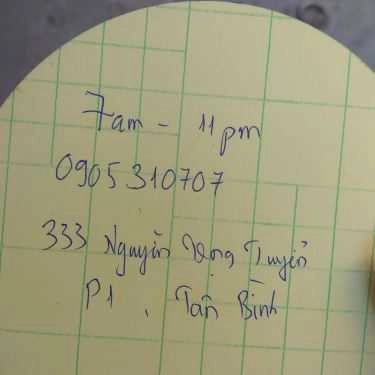 7am - 11pm
0905310707
333 Nguyễn Trọng Tuyển
P1, Tân Bình